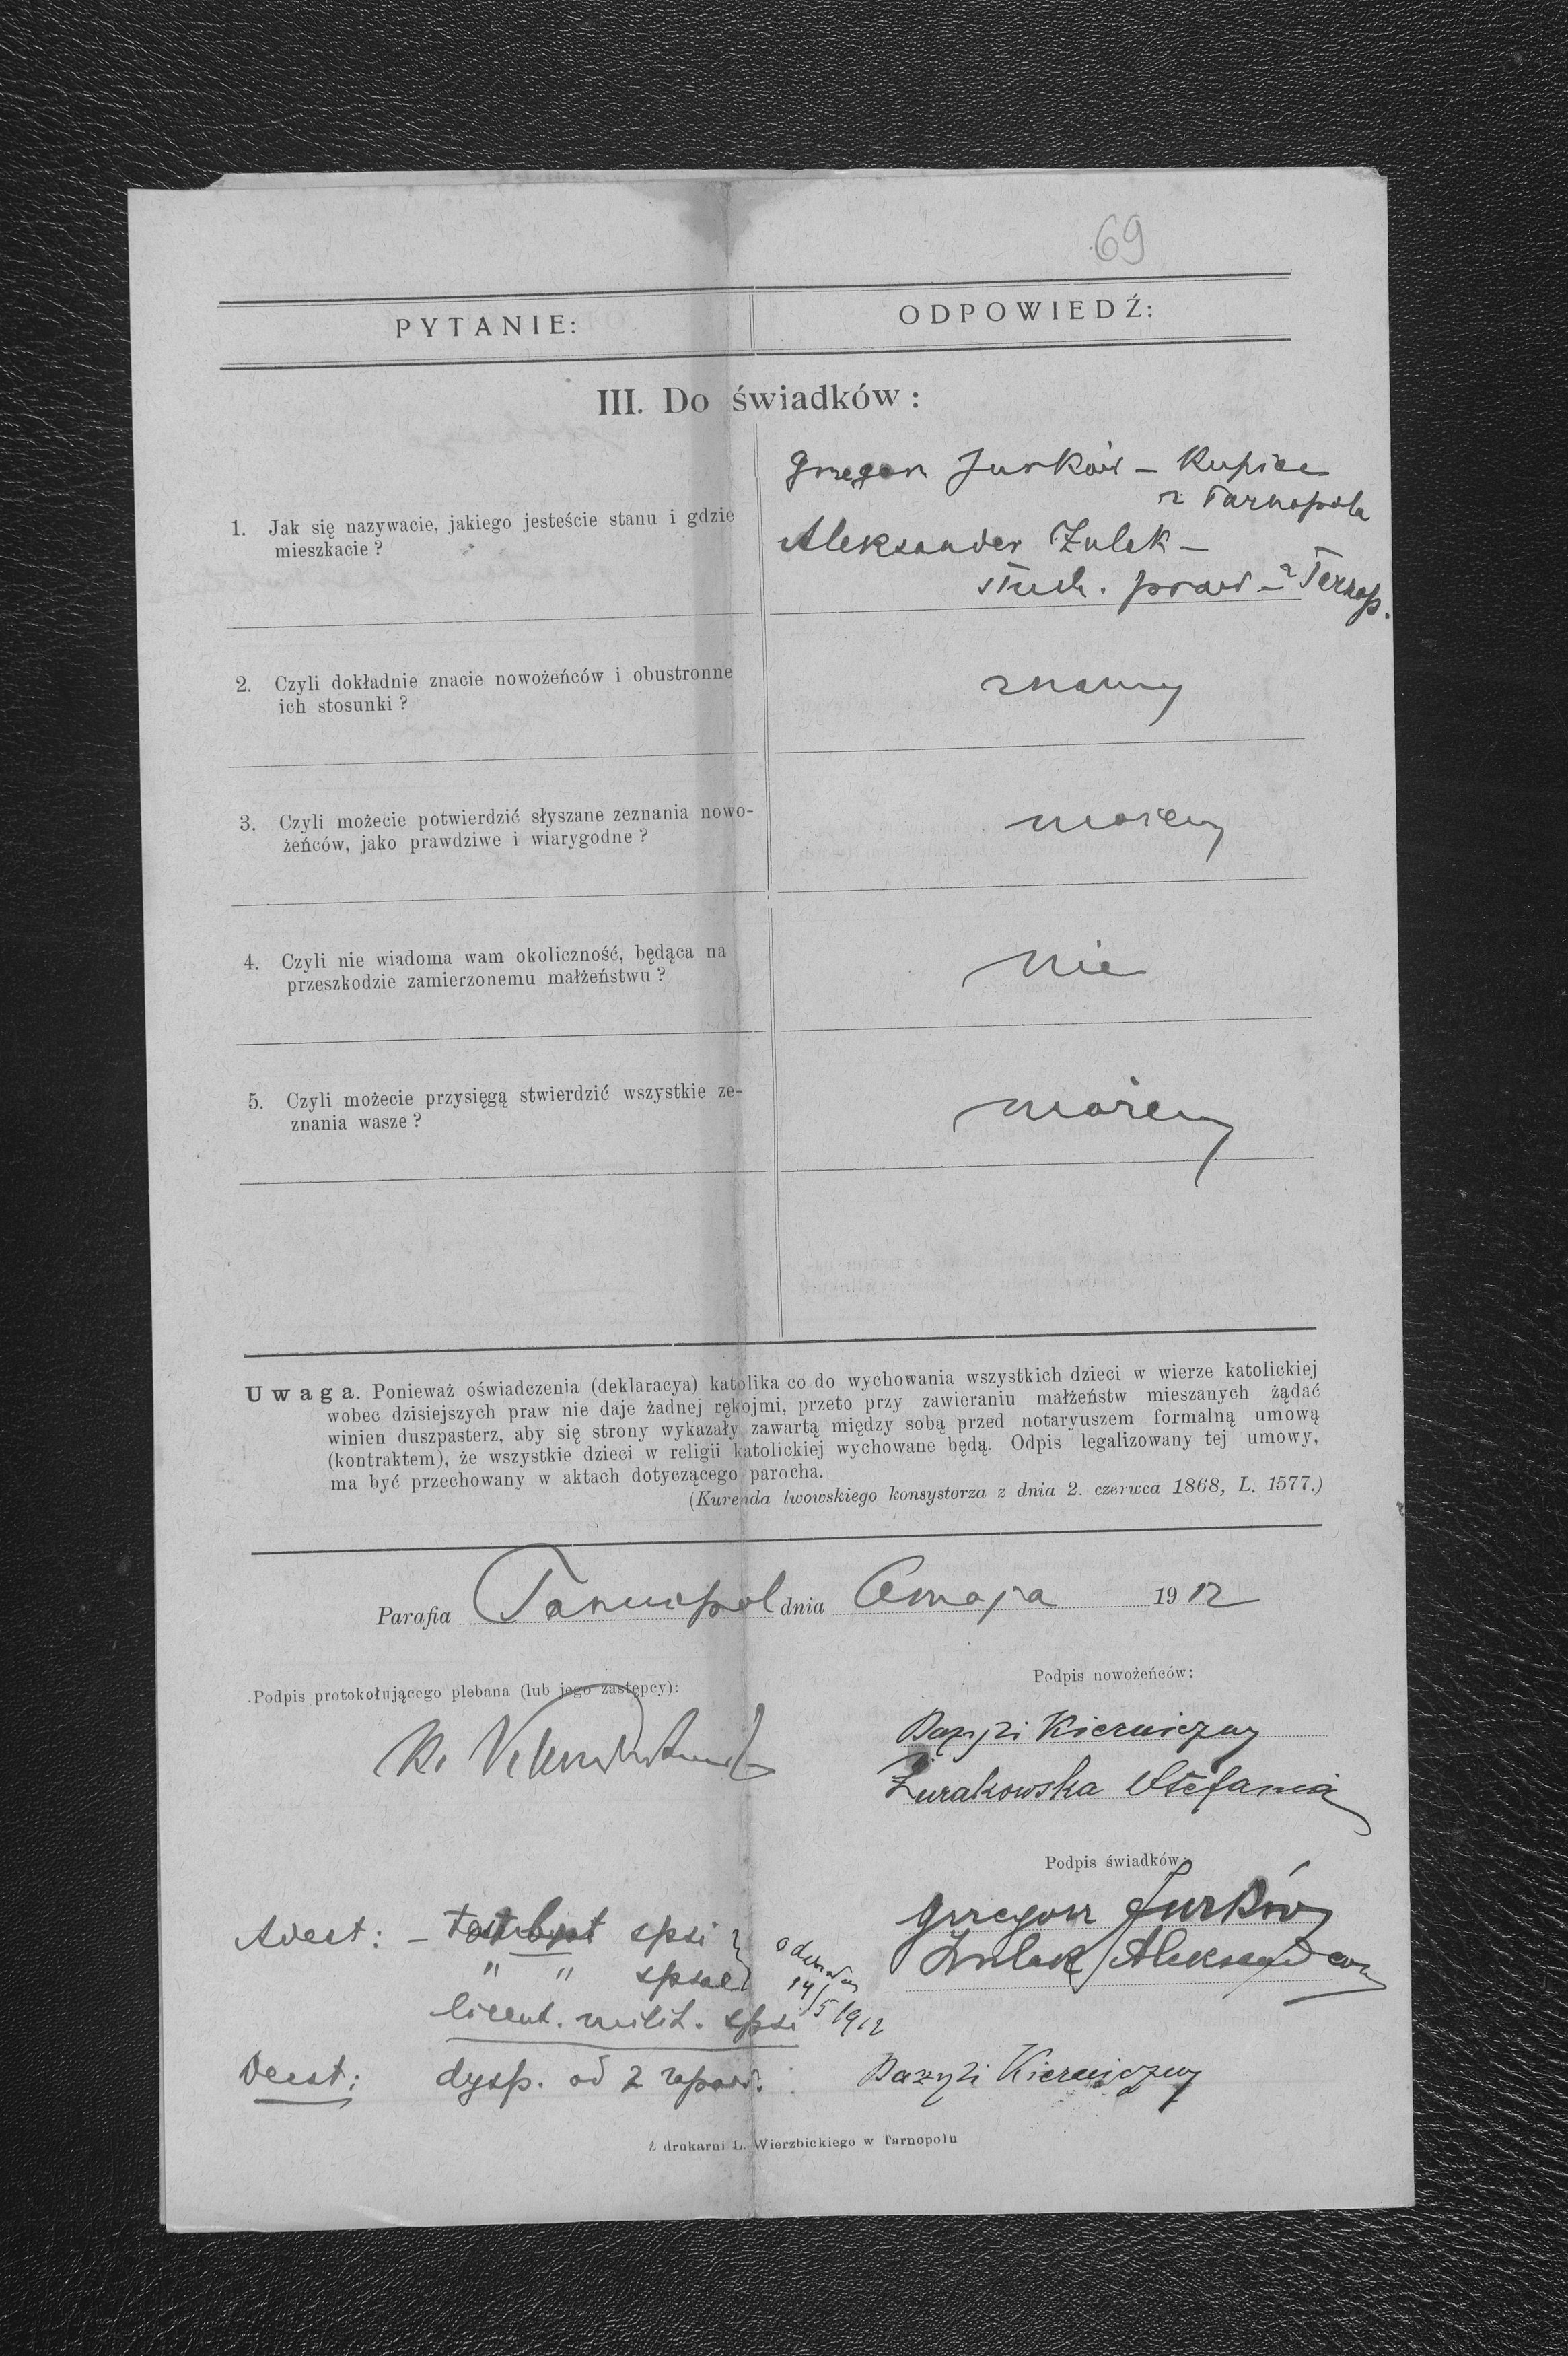 69
PYTANIE:
ODPOWIEDŹ:
III. Do świadków:
1. Jak się nazywacie, jakiego jesteście stanu i gdzie
mieszkacie?
Grzegorz Jurków – Kupiec
z Tarnopola
Aleksander Zulak –
stud. praw – z Tarnop.
2. Czyli dokładnie znacie nowożeńców i obustronne
ich stosunki?
znamy
3. Czyli możecie potwierdzić słyszane zeznania nowo-
żeńców, jako prawdziwe i wiarygodne?
możemy
4. Czyli nie wiadoma wam okoliczność, będąca na
przeszkodzie zamierzonemu małżeństwu?
nie
5. Czyli możecie przysięgą stwierdzić wszystkie ze-
znania wasze?
możemy
Uwaga. Ponieważ oświadczenia (deklaracya) katolika co do wychowania wszystkich dzieci w wierze katolickiej
wobec dzisiejszych praw nie daje żadnej rękojmi, przeto przy zawieraniu małżeństw mieszanych żądać
winien duszpasterz, aby się strony wykazały zawartą między sobą przed notaryuszem formalną umową
(kontraktem), że wszystkie dzieci w religii katolickiej wychowane będą. Odpis legalizowany tej umowy,
ma być przechowany w aktach dotyczącego parocha.
(Kurenda lwowskiego konsystorza z dnia 2. czerwca 1868, L. 1577.)
Parafia Tarnopol dnia maja 1912
Podpis protokołującego plebana (lub jego zastępcy):
Podpis nowożeńców:
Bazyli Kierniczny
Żurakowska Stefania
Podpis świadków:
Grzegorz Jurków
Zulak Aleksander
Adest: – test bapt spsi
" " spsae
14/5 1912
licent. milit. spsi
Deest: dysp. od 2 zapow.
Bazyli Kierniczny
Z drukarni L. Wierzbickiego w Tarnopolu